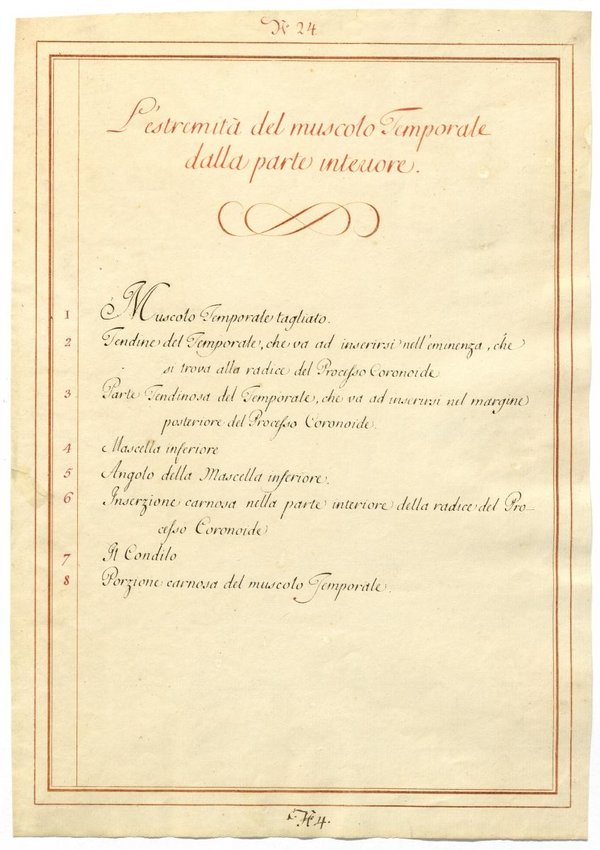 N. 24
L'estremità del muscolo Temporale
dalla parte interiore.
1 Muscolo Temporale tagliato.
2 Tendine del Temporale, che va ad inserirsi nell'eminenza, che
si trova alla radice del Processo Coronoide
3 Parte Tendinosa del Temporale, che va ad inserirsi nel margine
posteriore del Processo Coronoide.
4 Mascella inferiore
5 Angolo della Mascella inferiore.
6 Inserzione carnosa nella parte interiore della radice del Pro-
cesso Coronoide
7 Il Condilo
8 Porzione carnosa del muscolo Temporale.
N. 4.